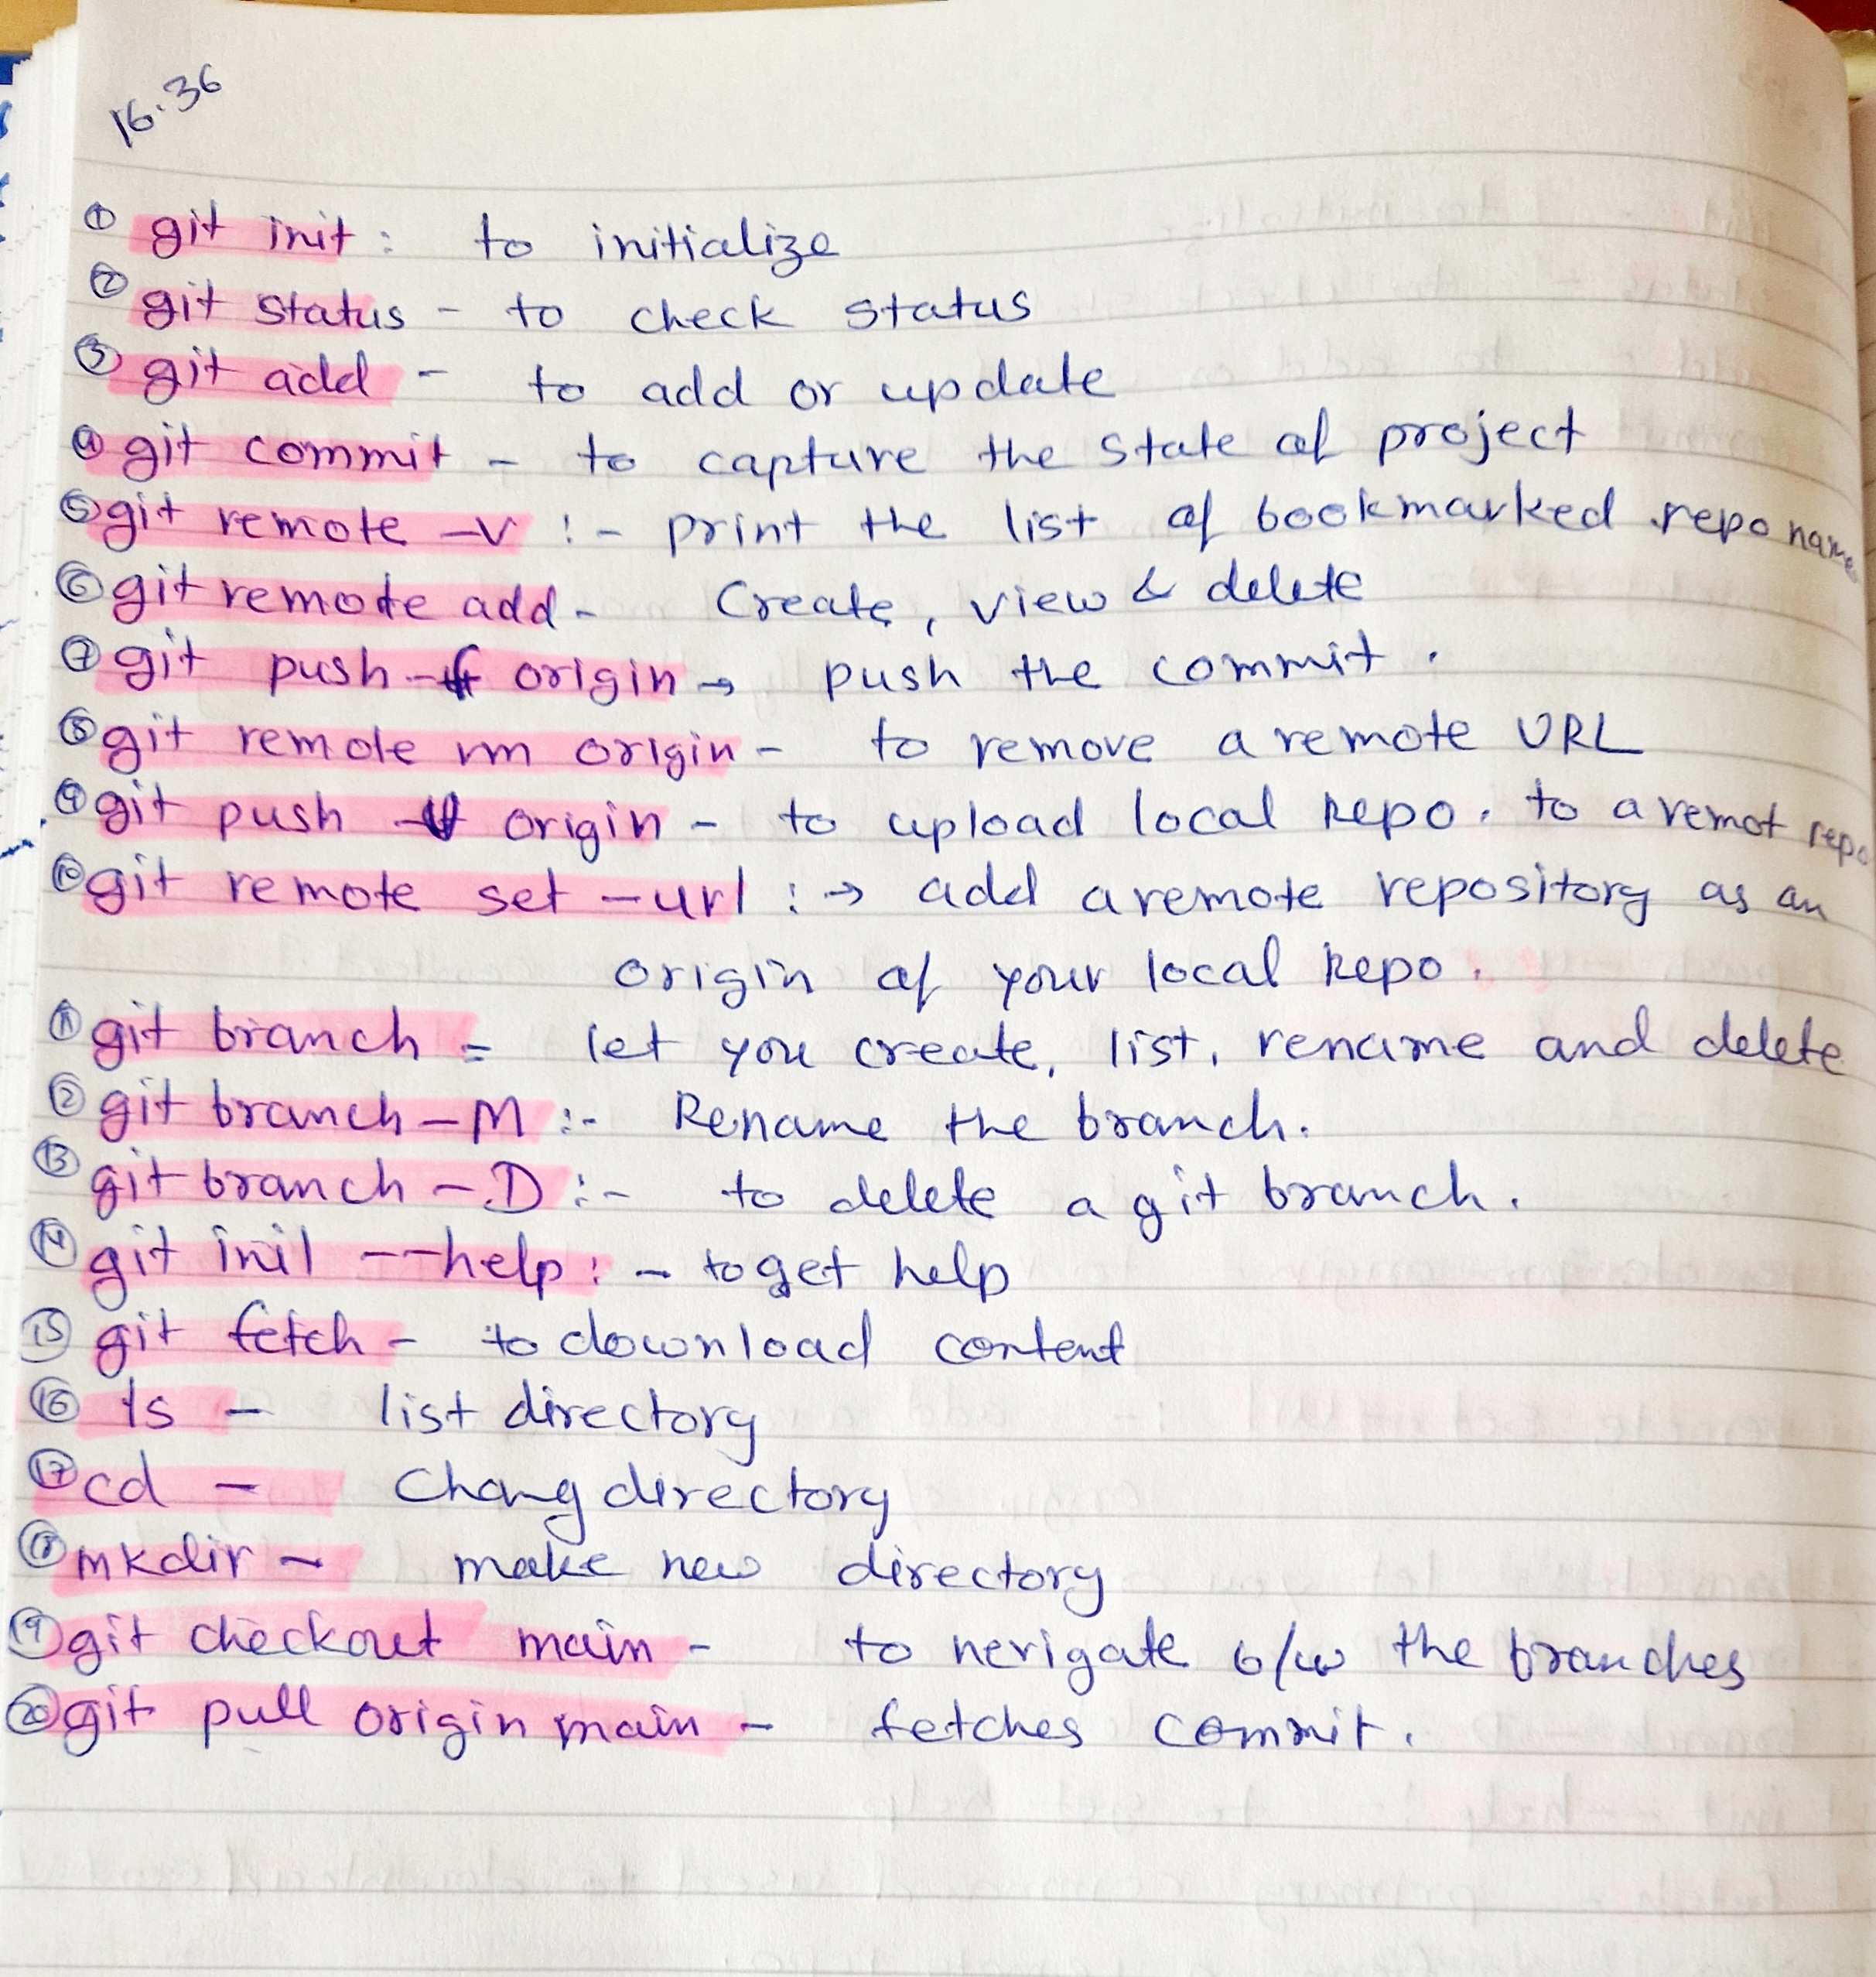 16.36
① git init : to initialize
② git status - to check status
③ git add - to add or update
④ git commit - to capture the state of project
⑤ git remote -v :- print the list of bookmarked repo name
⑥ git remote add - Create, view & delete
⑦ git push -f origin → push the commit.
⑧ git remote rm origin - to remove a remote URL
⑨ git push origin - to upload local repo. to a remot repo
⑩ git remote set -url : → add a remote repository as an
origin of your local repo.
⑪ git branch = let you create, list, rename and delete
⑫ git branch -M :- Rename the branch.
⑬ git branch -D :- to delete a git branch.
⑭ git init --help : - to get help
⑮ git fetch - to download content
⑯ ls - list directory
⑰ cd - Chang directory
⑱ mkdir - make new directory
⑲ git checkout main - to nerigate b/w the branches
⑳ git pull origin main - fetches commit.